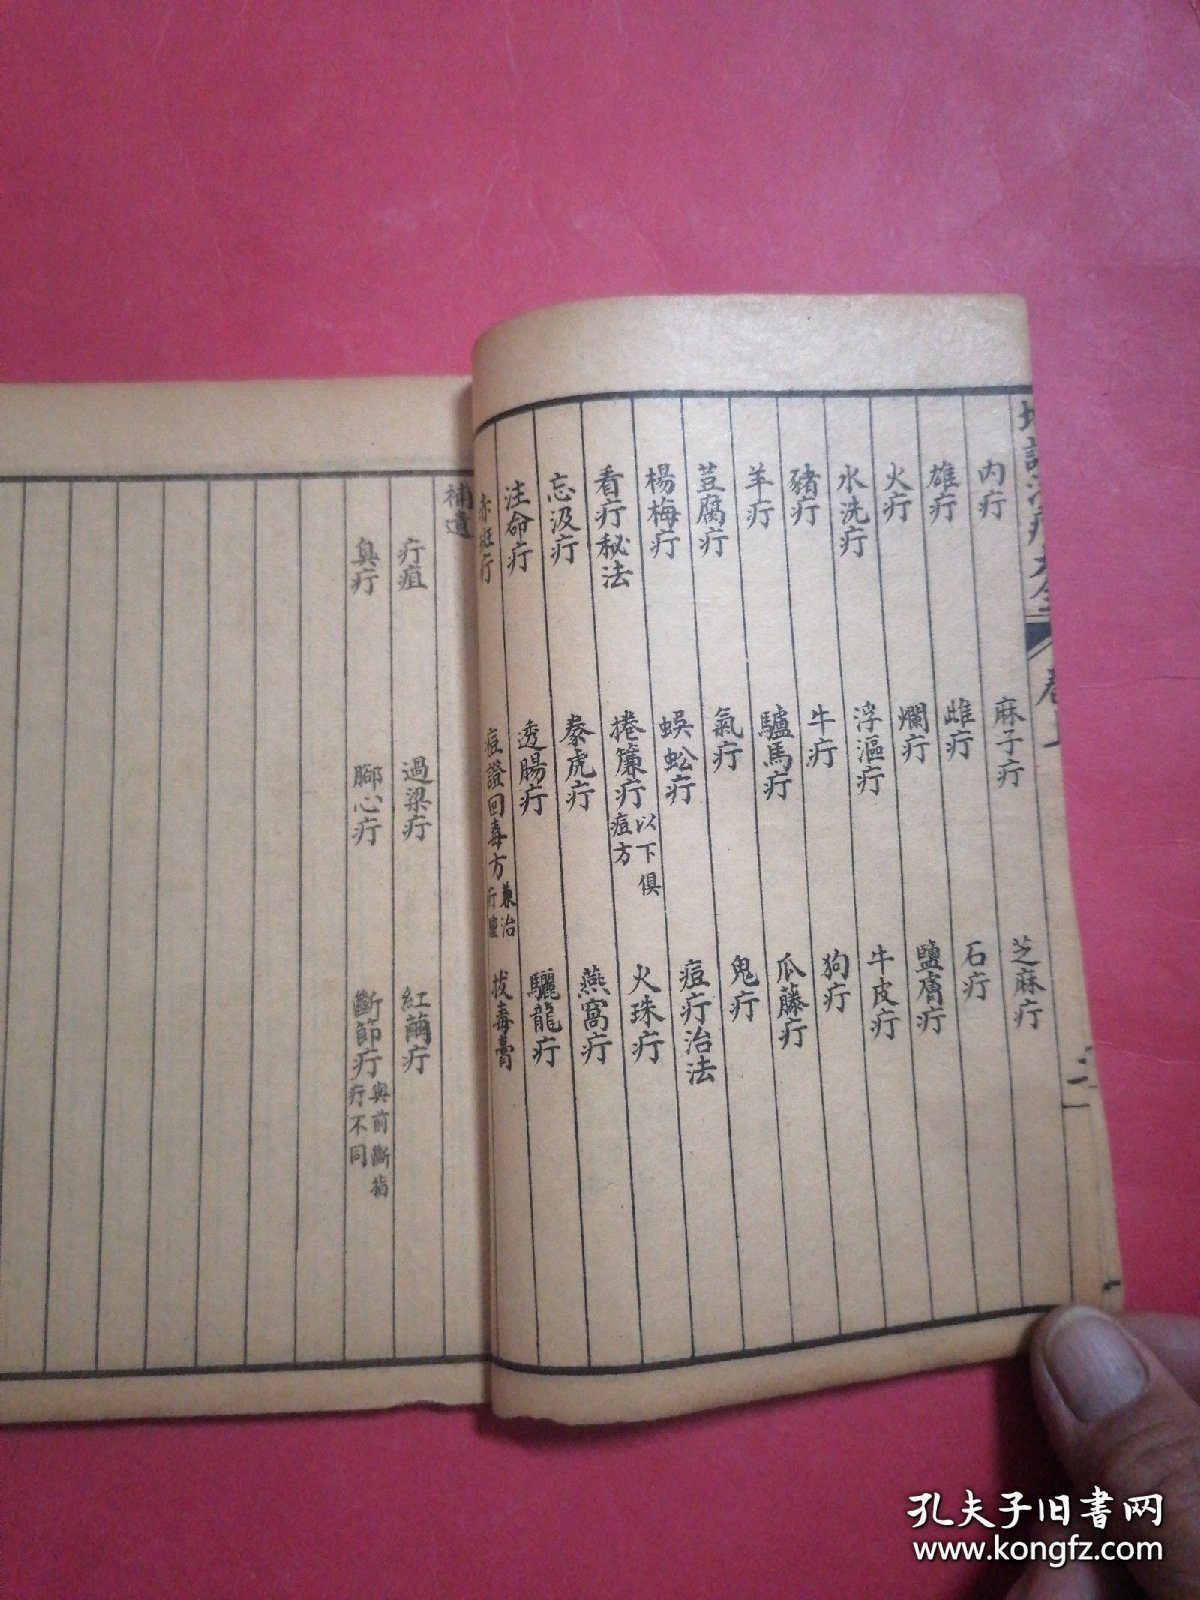 內疔 麻子疔 芝麻疔
雄疔 雌疔 石疔
火疔 爛疔 鹽膚疔
水洗疔 浮漚疔 牛皮疔
豬疔 牛疔 狗疔
羊疔 驢馬疔 瓜藤疔
荳腐疔 氣疔 鬼疔
楊梅疔 蜈蚣疔 痘疔治法
看疔秘法 捲簾疔 以下俱痘方 火珠疔
忘汲疔 泰虎疔 燕窩疔
注命疔 透腸疔 驪龍疔
赤斑疔 痘證回毒方 兼治疔 拔毒膏
補遺
疔疽 過梁疔 紅繭疔
臭疔 腳心疔 斷節疔 與前斷指疔不同
孔夫子旧书网
www.kongfz.com